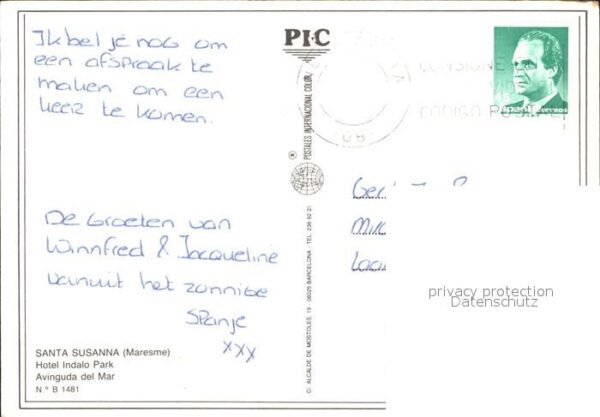 Ik bel je nog om
een afspraak te
maken om een
keer te komen.
De Groeten van
Winnfred & Jacqueline
vanuit het zonnige
Spanje
xxx
SANTA SUSANNA (Maresme)
Hotel Indalo Park
Avinguda del Mar
N.º B 1481
PIC
POSTALES INTERNACIONAL COLOR
C/. ALCALDE DE MOSTOLES, 19 - 08025 BARCELONA - TEL. 236 92 21
CONSIGNE
CODIGO POSTAL
España correos
privacy protection
Datenschutz